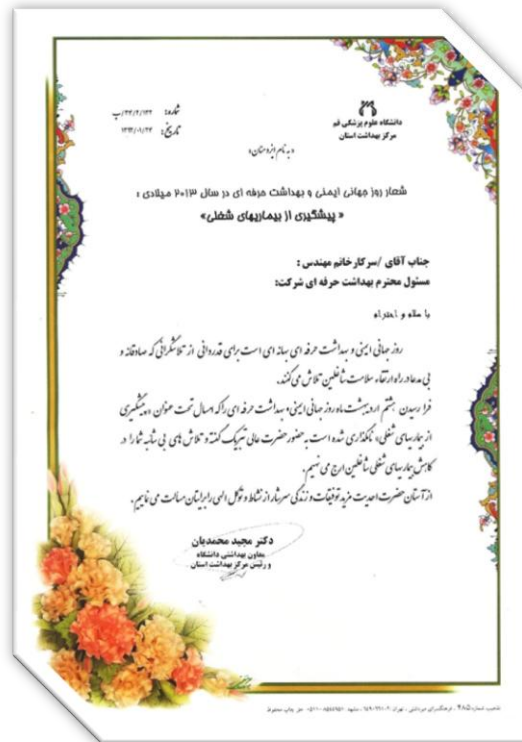 دانشگاه علوم پزشکی قم
مرکز بهداشت استان
شماره: ۳۳/۲/۱۳۲/پ
تاریخ:
«به نام ایزد منان»
شعار روز جهانی ایمنی و بهداشت حرفه ای در سال ۲۰۱۳ میلادی :
« پیشگیری از بیماریهای شغلی»
جناب آقای /سرکار خانم مهندس :
مسئول محترم بهداشت حرفه ای شرکت:
با سلام و احترام
روز جهانی ایمنی و بهداشت حرفه ای بهانه ای است برای قدردانی از تلاشگرانی که صادقانه و
بی مدعا در راه ارتقاء سلامت شاغلین تلاش می کنند.
فرا رسیدن هشتم اردیبهشت ماه روز جهانی ایمنی و بهداشت حرفه ای را که امسال تحت عنوان «پیشگیری
از بیماریهای شغلی» نامگذاری شده است به حضور حضرت عالی تبریک گفته و تلاش های بی شائبه شما را در
کاهش بیماریهای شغلی شاغلین ارج می نهیم.
از آستان حضرت احدیت مزید توفیقات و زندگی سرشار از نشاط و توکل الهی را برایتان مسالت می نماییم.
دکتر مجید محمدیان
معاون بهداشتی دانشگاه
و رئیس مرکز بهداشت استان